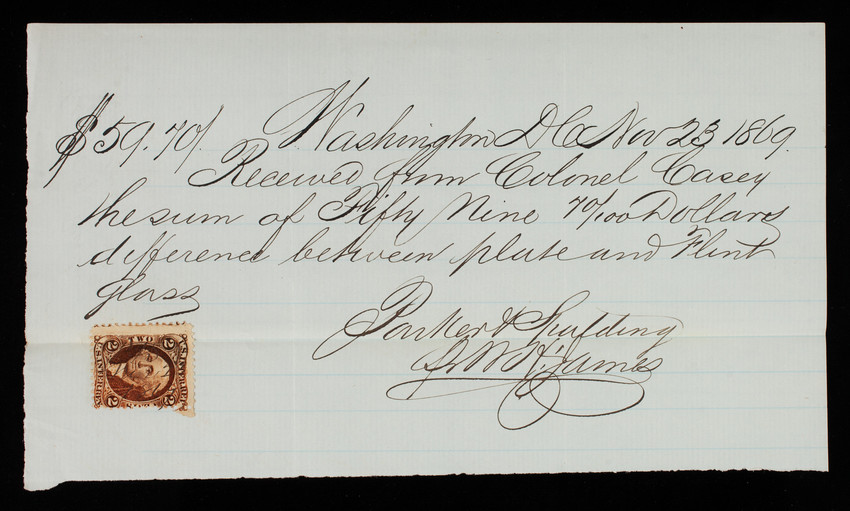 $59.70/. Washington DC Nov 23 1869.
Received from Colonel Casey
the sum of Fifty Nine 70/100 Dollars
difference between plate and Flint
glass
Parker & Spalding
W H James
TWO
2 2
2 2